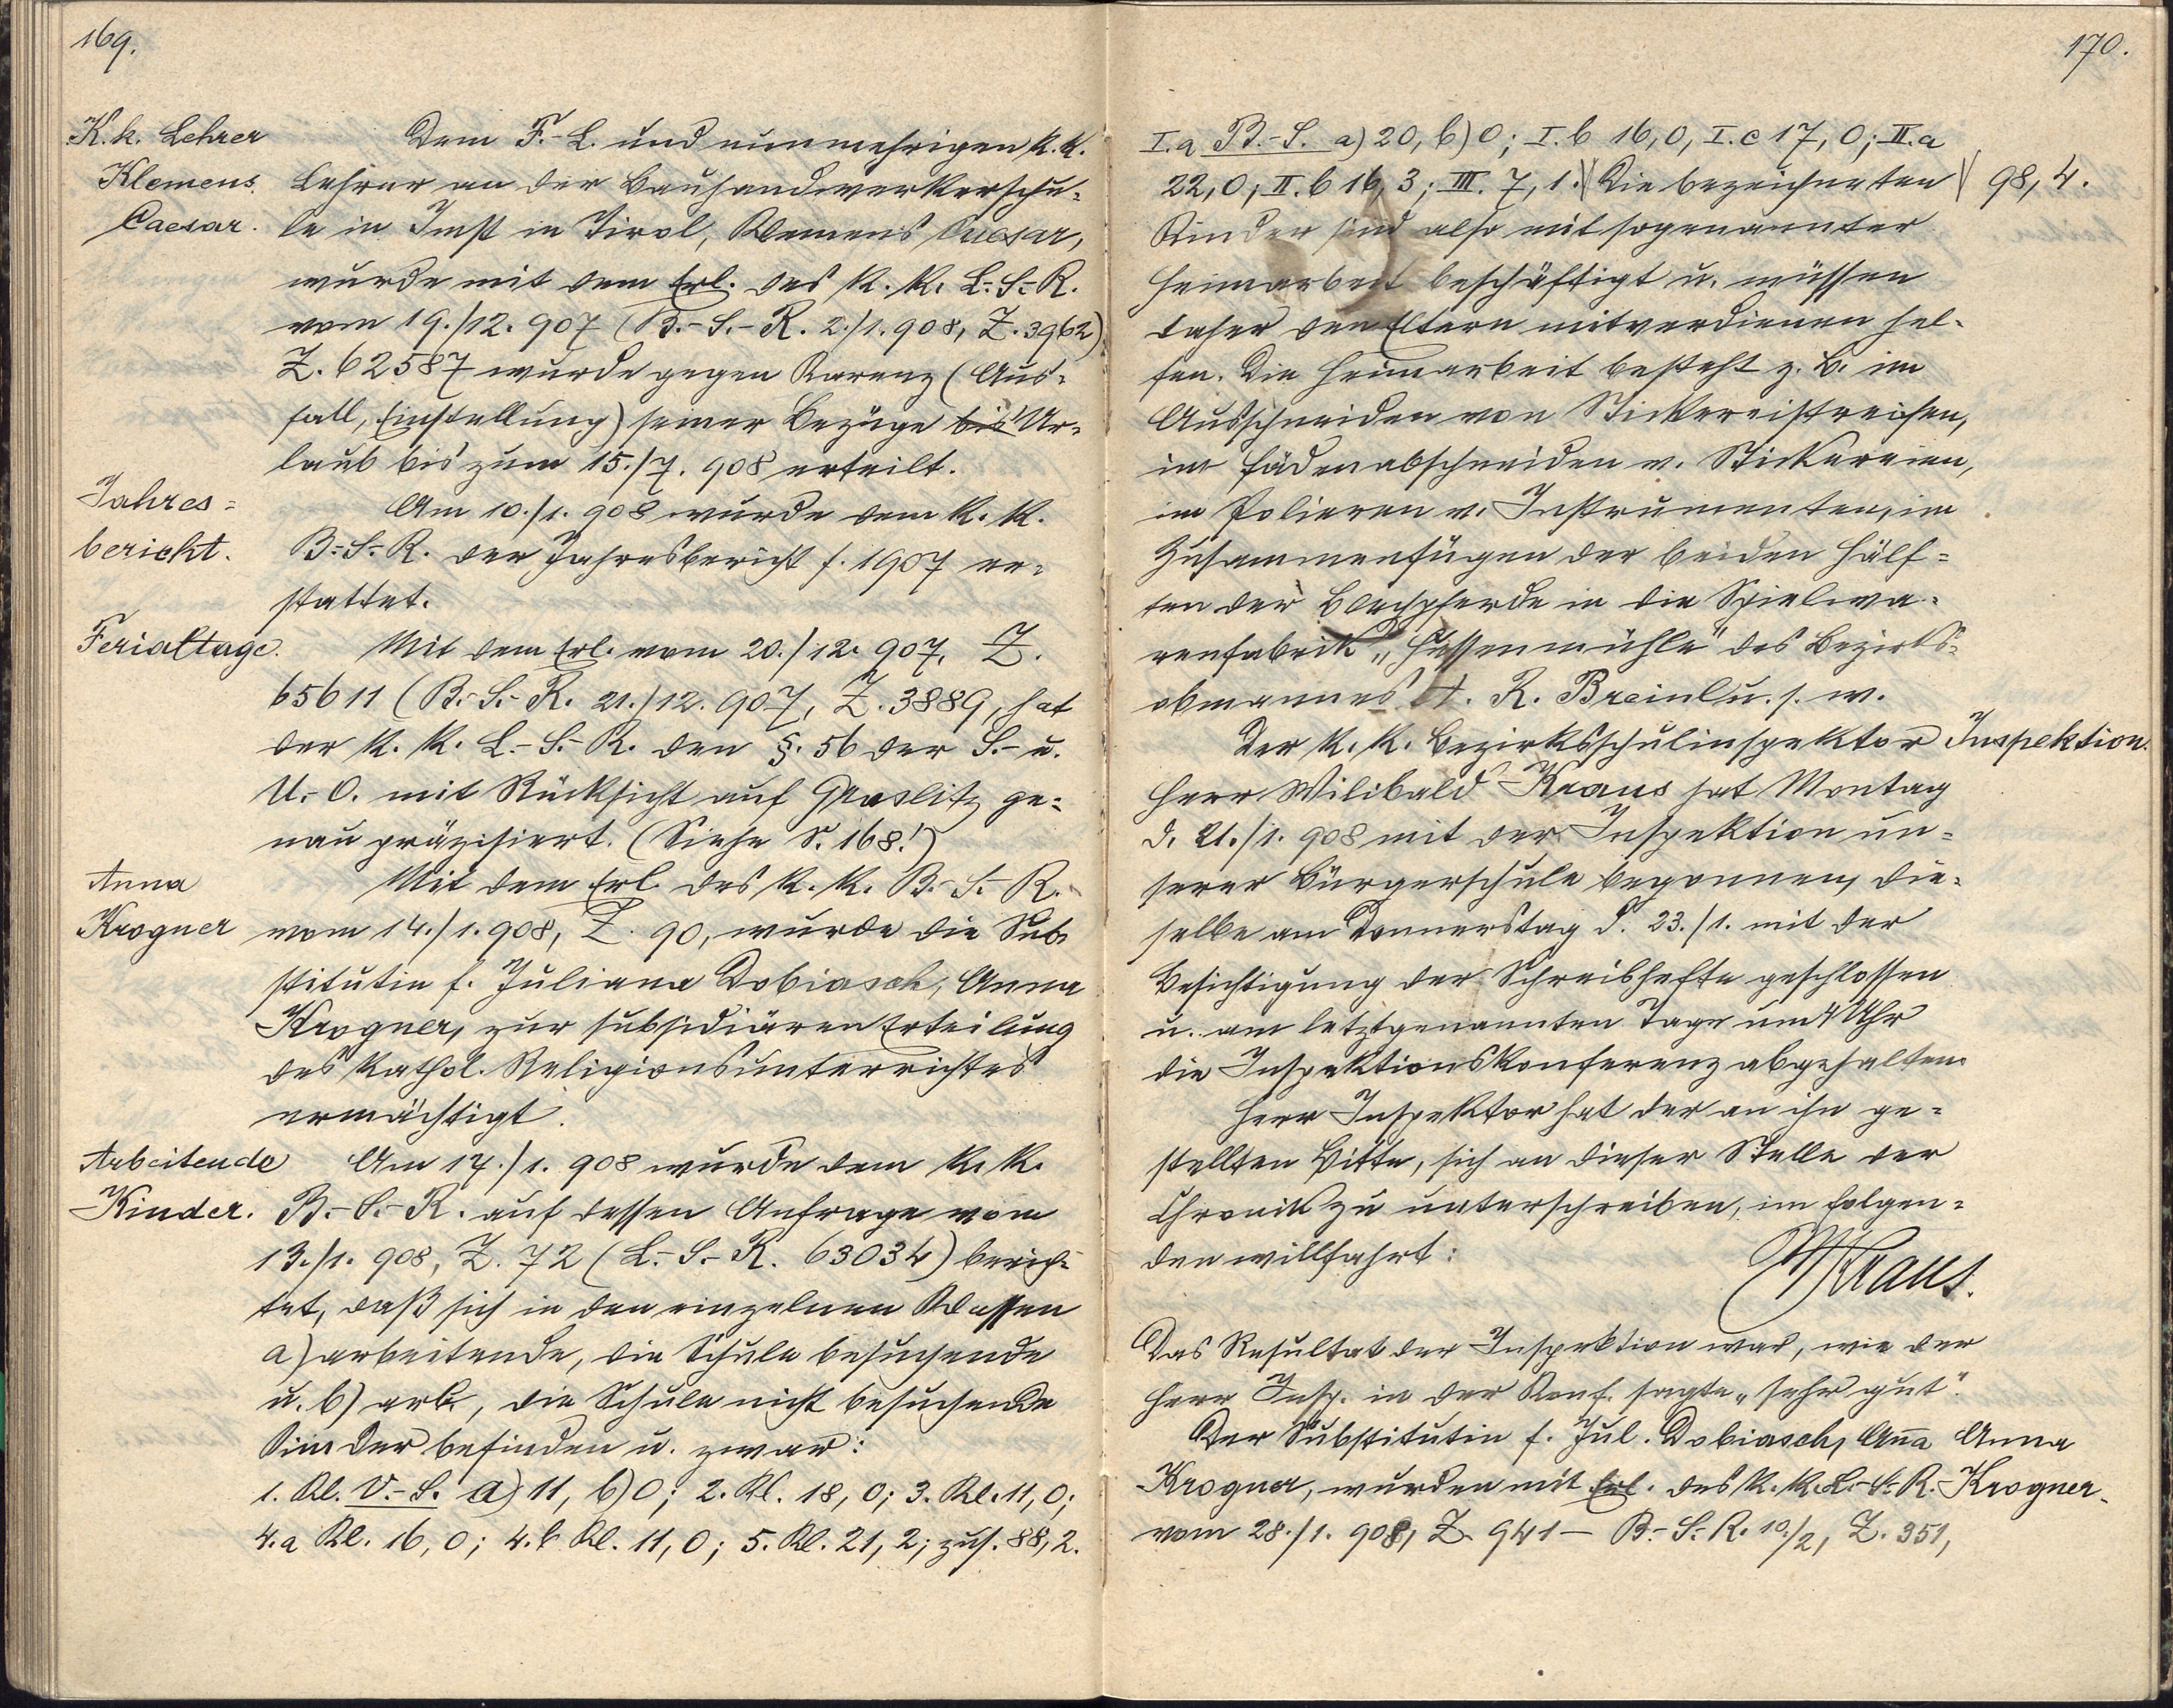 169.
K. k. Lehrer
Klemens
Caesar.
Dem F.-L. und nunmehrigen k. k.
Lehrer an der Bauhandwerkerschu-
le in Imst in Tirol, Klemens Caesar,
wurde mit dem Erl. des k. k. L.-S.-R.
vom 19./12. 907 (B.-S.-R. 2./1. 908, Z. 3962)
Z. 62587 wurde gegen Karenz (Aus-
fall, Einstellung) seiner Bezüge bis Ur-
laub bis zum 15./7. 908 erteilt.
Jahres-
bericht.
Am 10./1. 908 wurde dem k. k.
B.-S.-R. der Jahresbericht f. 1907 er-
stattet.
Ferialtage.
Mit dem Erl. vom 20./12. 907, Z.
65611 (B.-S.-R. 21./12. 907, Z. 3889, hat
der k. k. L.-S.-R. den §. 56 der S.- u.
U.-O. mit Rücksicht auf Graslitz ge-
nau präzisiert. (Siehe S. 168!)
Anna
Krogner
Mit dem Erl. des k. k. B.-S.-R.
vom 14./1. 908, Z. 90, wurde die Sub-
stitutin f. Juliana Dobiasch, Anna
Krogner, zur subsidiären Erteilung
des kathol. Religionsunterrichtes
ermächtigt.
Arbeitende
Kinder.
Am 17./1. 908 wurde dem k. k.
B.-S.-R. auf dessen Anfrage vom
13./1. 908, Z. 72 (L.-S.-R. 63034) berich-
tet, daß sich in den einzelnen Klassen
a) arbeitende, die Schule besuchende
u. b) arb., die Schule nicht besuchende
Kinder befinden u. zwar:
1. Kl. V.-S. a) 11, b) 0; 2. Kl. 18, 0; 3. Kl. 11, 0;
4.a Kl. 16, 0; 4.b Kl. 11, 0; 5. Kl. 21, 2; zus. 88, 2.
170.
I.a B.-S. a) 20, b) 0; I.b 16, 0, I.c 17, 0; II.a
22, 0, II.b 16, 3; III. 7, 1. Die bezeichneten
98, 4.
Kinder sind also mit sogenannter
Heimarbeit beschäftigt u. müssen
daher den Eltern mitverdienen hel-
fen. Die Heimarbeit besteht z. B. im
Ausschneiden von Stickereistreifen,
im Fädenabschneiden v. Stickereien,
im Polieren v. Instrumenten, im
Zusammenfügen der beiden Hälf-
ten der Blechpferde in die Spielwa-
renfabrik "Hussenmühle" des Bezirks-
obmannes A. R. Breinl u. s. w.
Inspektion.
Der k. k. Bezirksschulinspektor
Herr Wilibald Kraus hat Montag
d. 21./1. 908 mit der Inspektion un-
serer Bürgerschule begonnen, die-
selbe am Donnerstag d. 23./1. mit der
Besichtigung der Schreibhefte geschlossen
u. am letztgenannten Tage um 4 Uhr
die Inspektionskonferenz abgehalten.
Herr Inspektor hat der an ihn ge-
stellten Bitte, sich an dieser Stelle der
Chronik zu unterschreiben, im folgen-
den willfahrt:
WKraus.
Das Resultat der Inspektion war, wie der
Herr Insp. in der Konf. sagte "sehr gut".
Der Substitutin f. Jul. Dobiasch, Anna
Anna
Krogner, wurden mit Erl. des k. k. L.-S.-R.
Krogner.
vom 28./1. 908, Z. 941 – B.-S.-R. 10./2, Z. 351,